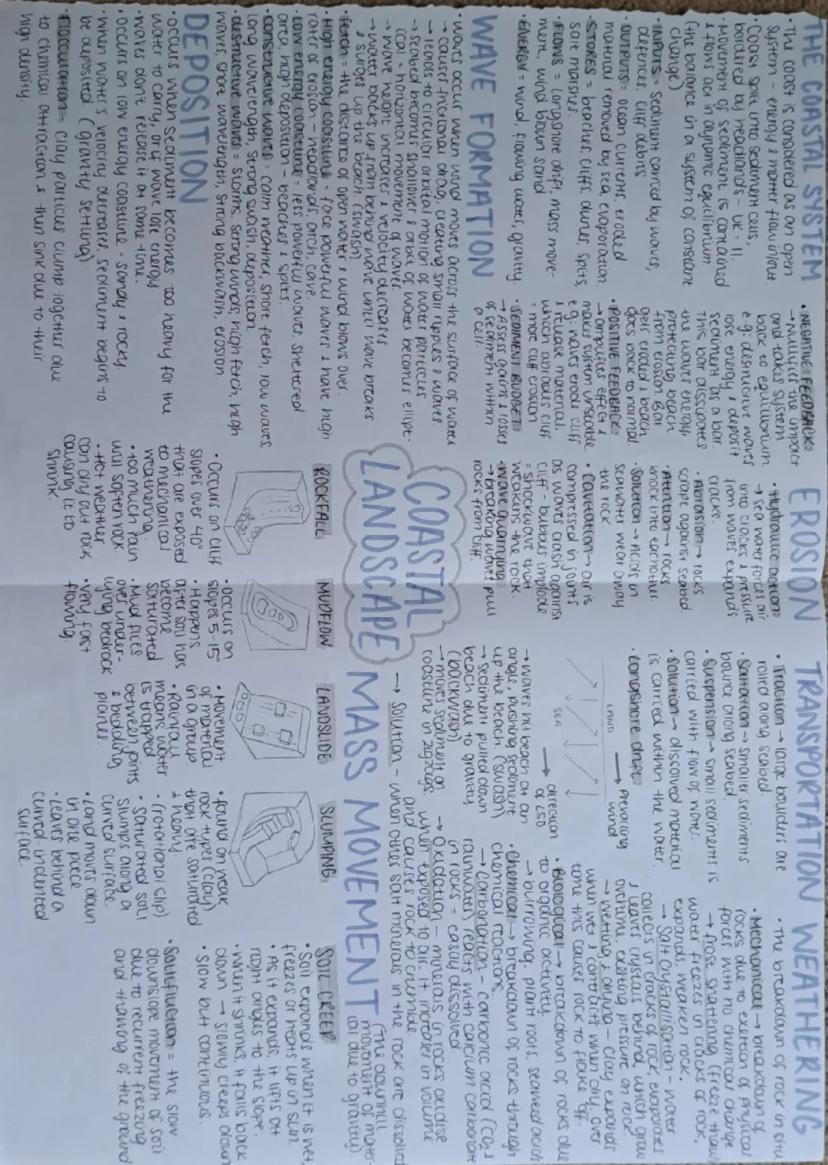 THE COASTAL SYSTEM
• The coast is considered as an open
system - energy & matter flow in/out.
• Coast split into sediment cells,
bordered by headlands - UK = 11.
• Movement of sediment is contained
& flows act in dynamic equilibrium
(the balance in a system of constant
change)
• INPUTS = Sediment carried by waves,
defences, cliff debris
• OUTPUTS = ocean currents, eroded
material removed by sea, evaporation.
• STORES = beaches, cliffs, dunes, spits,
salt marshes.
• FLOWS = Longshore drift, mass move-
ment, wind blown sand
• ENERGY = wind, flowing water, gravity
• NEGATIVE FEEDBACK =
→ Nullifies the impact
and takes system
back to equilibrium.
e.g. destructive waves
lose energy & deposit
sediment as a bar.
This bar dissipates
the waves energy
protecting beach
from erosion. Bar
gets eroded & beach
goes back to normal
• POSITIVE FEEDBACK =
→ amplifies effect &
makes system unstable
e.g. waves erode cliff
& release material
which abrades cliff
= more cliff erosion
• SEDIMENT BUDGET =
→ Assess gains & losses
of sediment within
a cell.
WAVE FORMATION
• waves occur when wind moves across the surface of water
→ causes frictional drag, creating small ripples & waves
→ leads to circular orbital motion of water particles
→ seabed becomes shallower & orbit of water becomes ellipt-
ical = horizontal movement of waves
→ wave height increases & velocity decreases
→ water backs up from behind wave until wave breaks
& surges up the beach (swash)
• Fetch = the distance of open water & wind blows over.
• High energy coastline = more powerful waves & have high
rates of erosion - headlands, arch, cave.
• Low energy coastline = less powerful waves, sheltered
area, high deposition - beaches & spits.
• constructive waves = calm weather, short fetch, low waves,
long wavelength, strong swash, deposition.
• destructive waves = storms, strong winds, high fetch, high
waves, short wavelength, strong backwash, erosion.
DEPOSITION
• occurs when sediment becomes too heavy for the
water to carry, or if wave lose energy
• waves don't release it at same time.
• occurs on low energy coastline - sandy & rocky
• when water's velocity decreases, sediment begins to
be deposited (gravity settling)
• Flocculation = clay particles clump together due
to chemical attraction & then sink due to their
high density.
EROSION
• Hydraulic action =
→ sea water forces air
into cracks & pressure
from waves expands
cracks.
• Abrasion → rocks
scrape against seabed
• Attrition → rocks
knock into eachother
• Solution → Acids in
seawater wear away
the rock
• Cavitation → air is
compressed in joints
as waves crash against
cliff - bubbles implode
= shockwave that
weakens the rock
• wave quarrying
→ breaking waves pull
rocks from cliff.
TRANSPORTATION
• Traction → large boulders are
rolled along seabed
• Saltation → smaller sediments
bounce along seabed.
• Suspension → small sediments is
carried with flow of water.
• Solution → dissolved material
is carried within the water.
• Longshore drift =
→ Prevailing
wind
LAND
SEA
→ direction
of LSD
→ waves hit beach at an
angle, pushing sediment
up the beach (swash)
→ sediment pulled down
beach due to gravity
(backwash)
→ moves sediment on
coastline in zigzags.
WEATHERING
• The breakdown of rock in situ
• Mechanical → breakdown of
rocks due to exertion of physical
forces with no chemical change
→ frost shattering (freeze thaw)
water freezes in cracks of rock,
expands weaken rock.
→ Salt crystallisation - water
collects in cracks of rock, evaporates
& leaves crystals behind, which grow
overtime, exerting pressure on rock.
→ wetting & drying - clay expands
when wet & contracts when dry, over
time this causes rock to flake off.
• Biological → breakdown of rocks due
to organic activity.
→ burrowing, plant roots, seaweed acids
• Chemical → breakdown of rocks through
chemical reactions.
→ Carbonation - carbonic acid (CO₂ &
rainwater) reacts with calcium carbonate
in rocks = easily dissolved.
→ Oxidation - minerals in rocks oxidise
when exposed to air. It increases in volume
and causes rock to crumble.
→ Solution - when other salt minerals in the rock are dissolved
COASTAL
LANDSCAPE
MASS MOVEMENT
(The downhill
movement of mater-
ial due to gravity)
ROCKFALL
• Occurs on cliff
slopes over 40°
that are exposed
to mechanical
weathering.
• too much rain
will soften rock
• Hot weather
can dry out rock
causing it to
shrink.
MUDFLOW
• occurs on
slopes 5-15°
• Happens
after soil has
become
saturated
• Mud flies
over under-
lying bedrock
• very fast
flowing.
LANDSLIDE
• Movement
of material
in a group
• Rainfall
means water
is trapped
between joints
& bedding
planes.
SLUMPING
• found on weak
rock types (clay)
that are saturated
& heavy.
• (rotational slip)
• saturated soil
slumps along a
curved surface.
• Land moves down
in one piece
• Leaves behind a
curved indented
surface.
SOIL CREEP
• Soil expands when it is wet,
freezes or heats up in sun.
• As it expands, it lifts at
right angles to the slope.
• When it shrinks, it falls back
down → slowly creeps down
• Slow but continuous.
• Solifluction = the slow
downslope movement of soil
due to recurrent freezing
and thawing of the ground